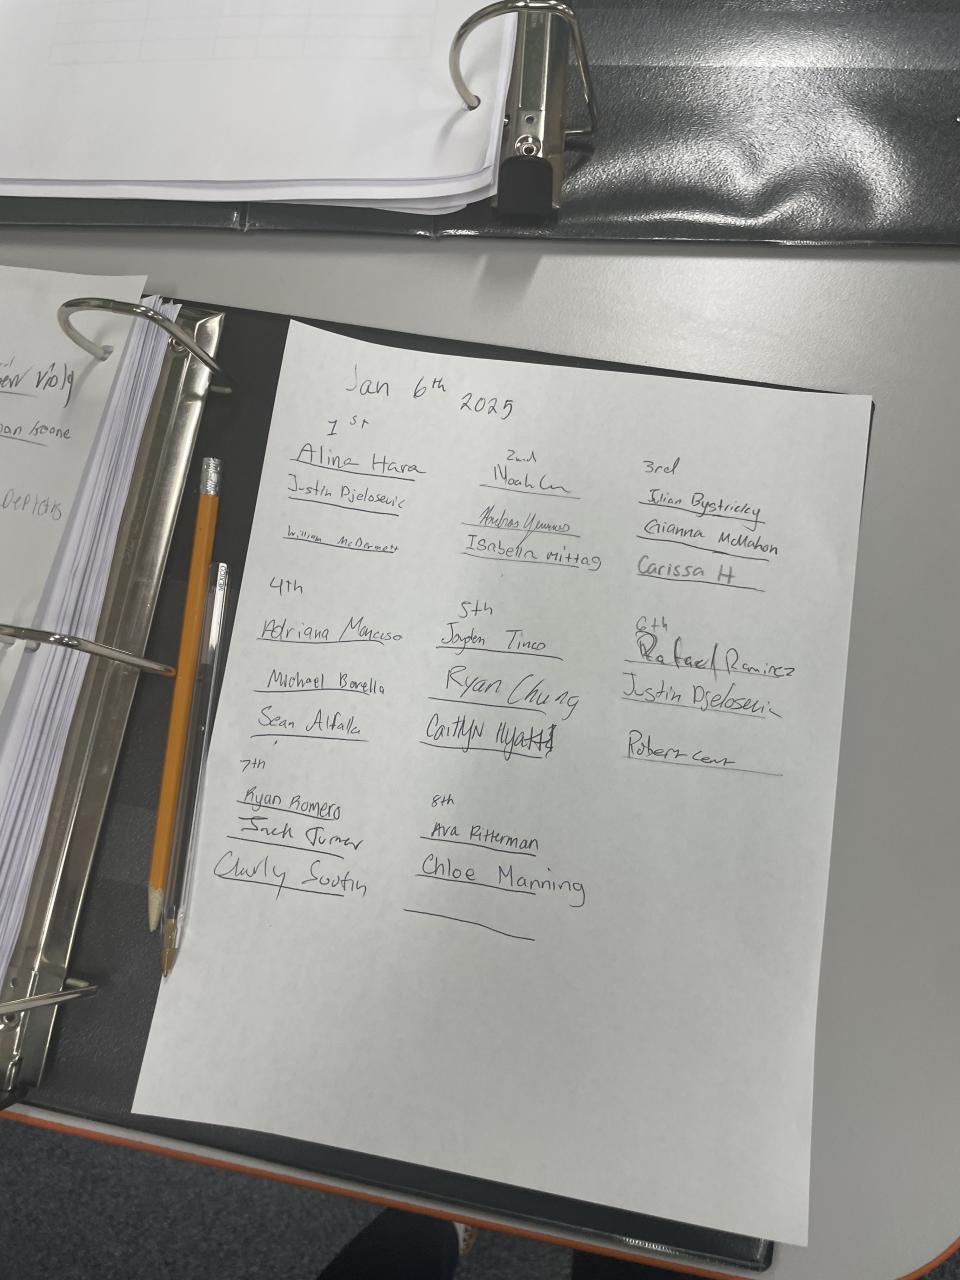 Jan 6th 2025
1st
Alina Hara
Justin Djelosevic
William McDermott
2nd
Noah
Isabella Mittag
3rd
Bystricky
Gianna McMahon
Carissa H
4th
Adriana Mancuso
Michael Borella
Sean Alfalla
5th
Jayden Tinco
Ryan Chung
Caitlyn Hyatt
6th
Rafael Ramirez
Justin Djelosevic
Robert
7th
Ryan Romero
Jack Turner
8th
Ava Ritterman
Chloe Manning
MEXICO